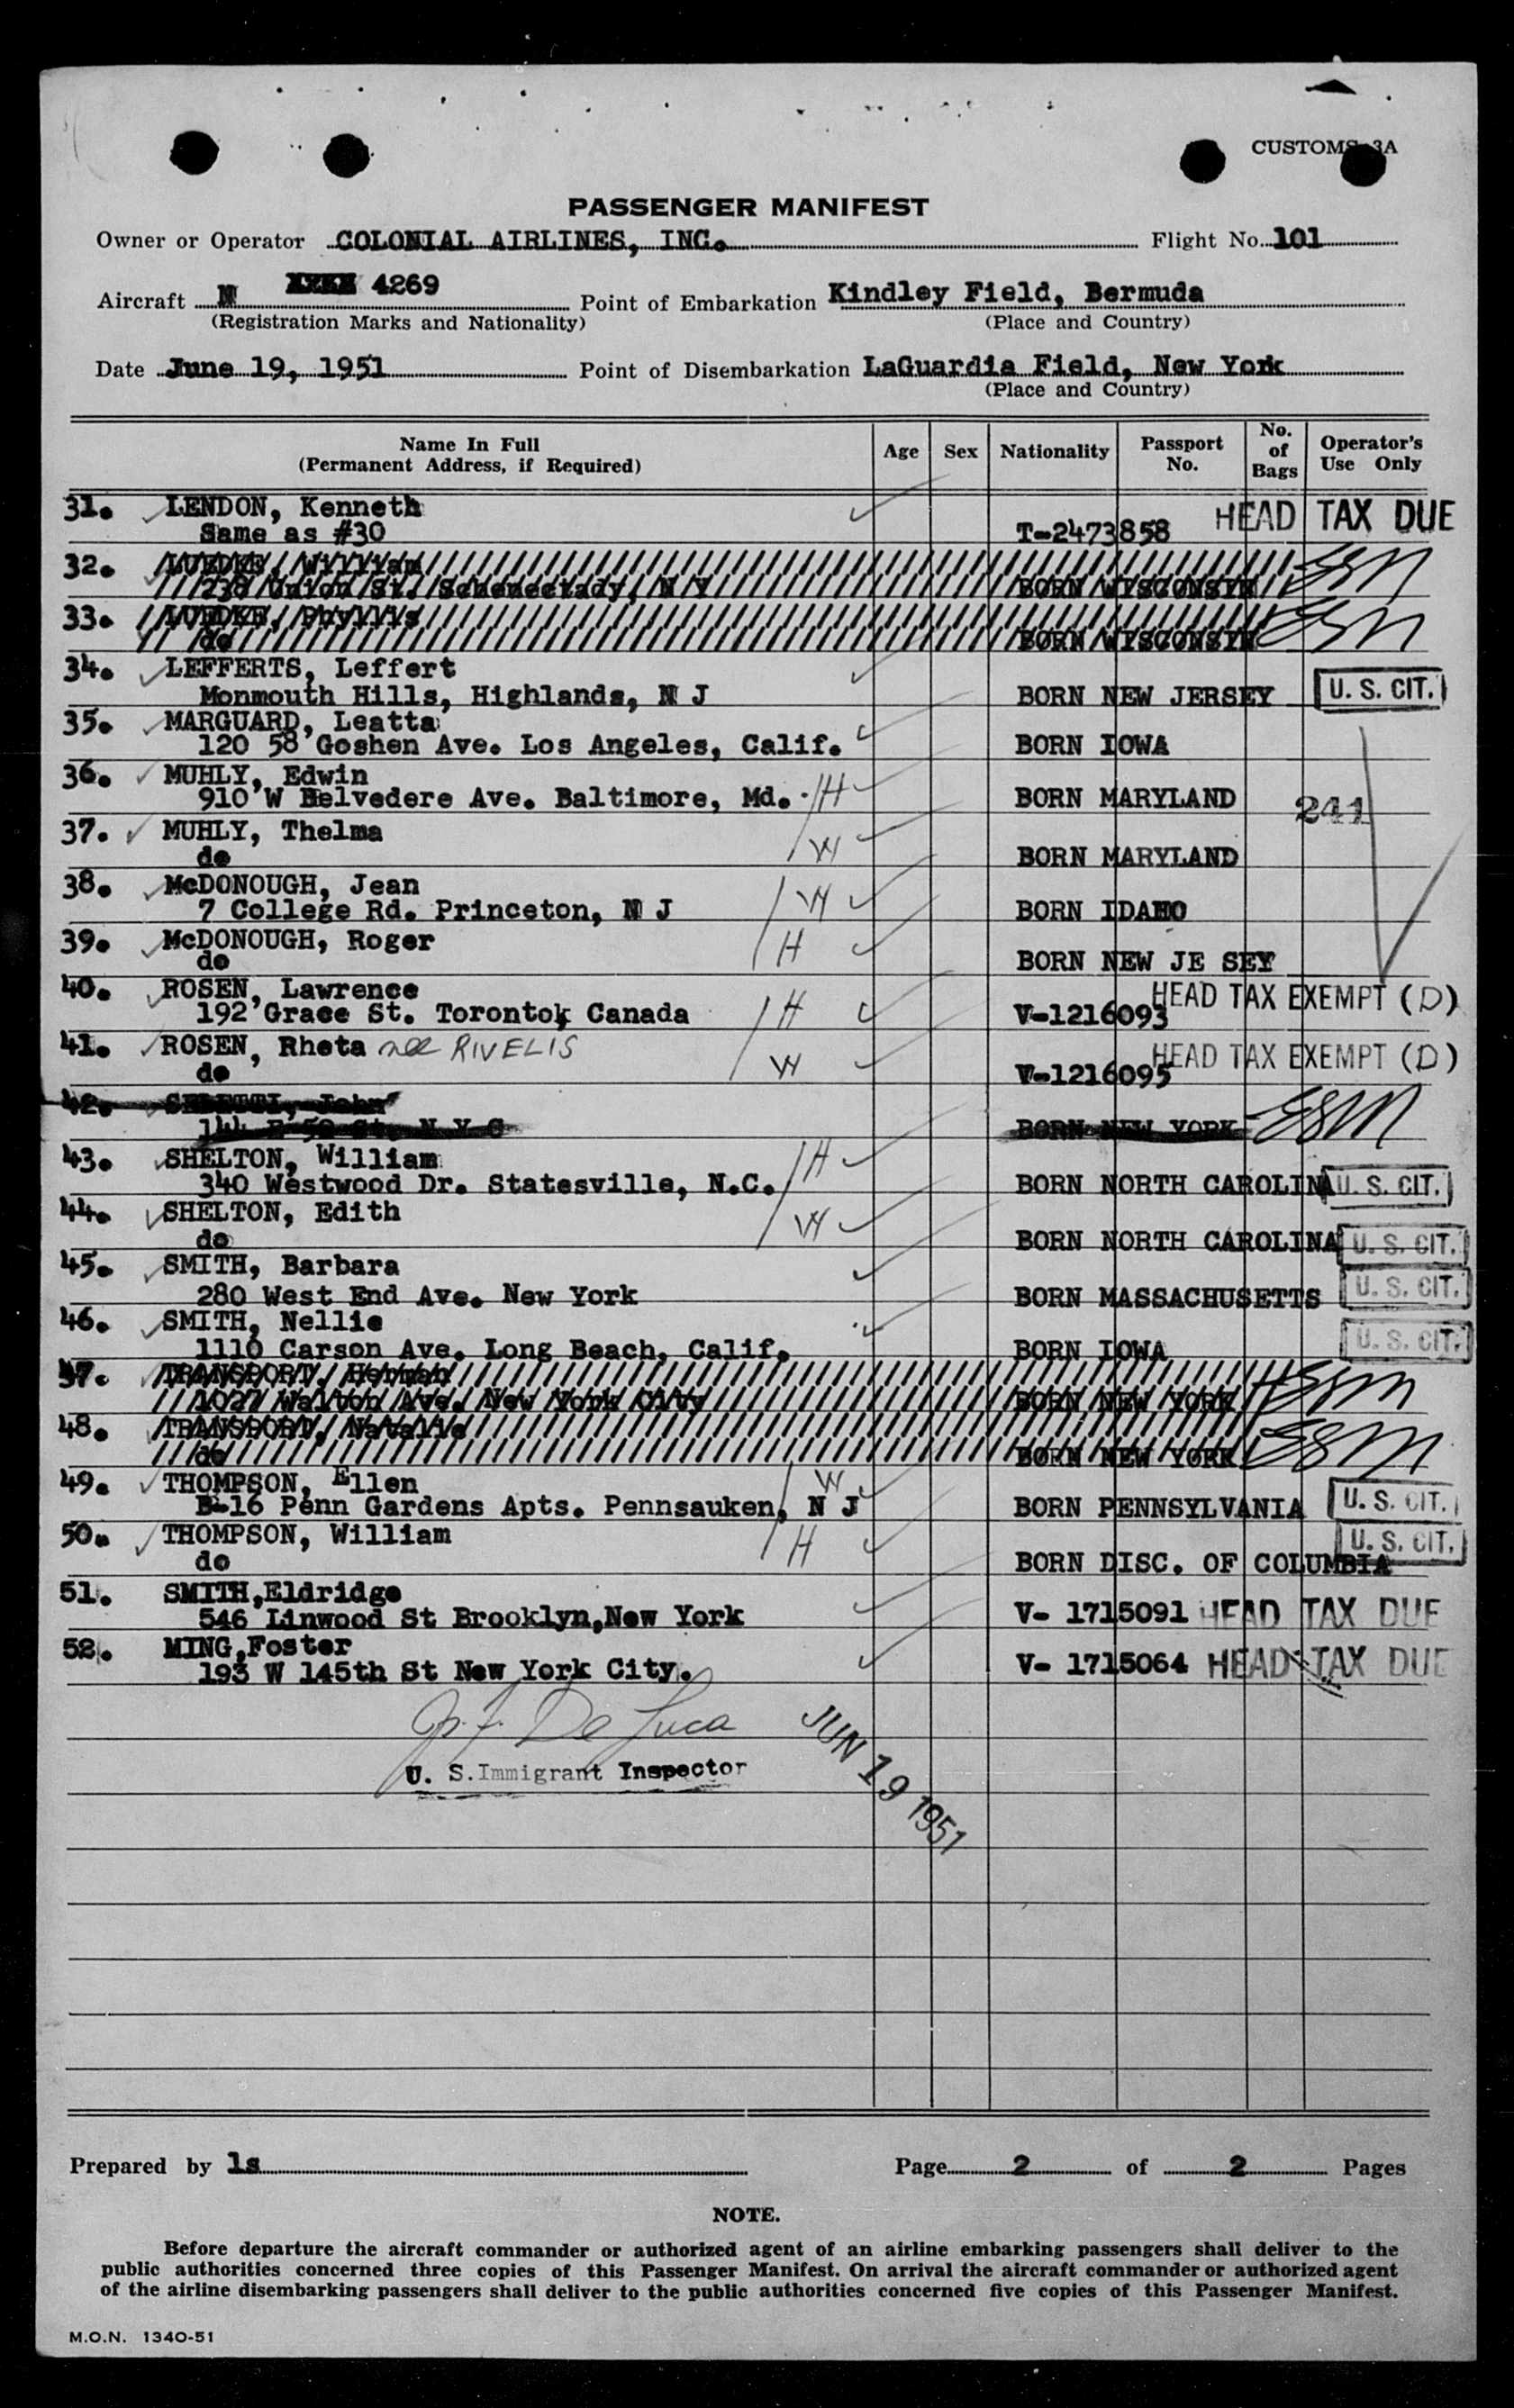 CUSTOMS 3A
PASSENGER MANIFEST
Owner or Operator COLONIAL AIRLINES, INC. Flight No. 101
Aircraft N 4269 Point of Embarkation Kindley Field, Bermuda
(Registration Marks and Nationality) (Place and Country)
Date June 19, 1951 Point of Disembarkation LaGuardia Field, New York
(Place and Country)
Name In Full (Permanent Address, if Required) Age Sex Nationality Passport No. No. of Bags Operator's Use Only
31. LENDON, Kenneth HEAD TAX DUE
Same as #30 T-2473858
32. LUEDKE, William
238 Union St. Schenectady, N Y BORN WISCONSIN ESM
33. LUEDKE, Phyllis
do BORN WISCONSIN ESM
34. LEFFERTS, Leffert
Monmouth Hills, Highlands, N J BORN NEW JERSEY U. S. CIT.
35. MARGUARD, Leatta
120 58 Goshen Ave. Los Angeles, Calif. BORN IOWA
36. MUHLY, Edwin
910 W Belvedere Ave. Baltimore, Md. H BORN MARYLAND 241
37. MUHLY, Thelma
do W BORN MARYLAND
38. McDONOUGH, Jean
7 College Rd. Princeton, N J W BORN IDAHO
39. McDONOUGH, Roger H
do BORN NEW JE SEY
40. ROSEN, Lawrence HEAD TAX EXEMPT (D)
192 Grace St. Toronto, Canada H V-1216093
41. ROSEN, Rheta nee RIVELIS HEAD TAX EXEMPT (D)
do W V-1216095
42. John
144 E 50 St. N Y C BORN NEW YORK ESM
43. SHELTON, William H
340 Westwood Dr. Statesville, N.C. BORN NORTH CAROLINA U. S. CIT.
44. SHELTON, Edith W
do BORN NORTH CAROLINA U. S. CIT.
45. SMITH, Barbara
280 West End Ave. New York BORN MASSACHUSETTS U. S. CIT.
46. SMITH, Nellie
1110 Carson Ave. Long Beach, Calif. BORN IOWA U. S. CIT.
47. TRANSPORT, Herman
1027 Walton Ave. New York City BORN NEW YORK ESM
48. TRANSPORT, Natalie
do BORN NEW YORK ESM
49. THOMPSON, Ellen W
B-16 Penn Gardens Apts. Pennsauken, N J BORN PENNSYLVANIA U. S. CIT.
50. THOMPSON, William H U. S. CIT.
do BORN DISC. OF COLUMBIA
51. SMITH,Eldridge
546 Linwood St Brooklyn,New York V- 1715091 HEAD TAX DUE
52. MING,Foster
193 W 145th St New York City. V- 1715064 HEAD TAX DUE
De Luca
U. S. Immigrant Inspector
JUN 19 1951
Prepared by ls Page 2 of 2 Pages
NOTE.
Before departure the aircraft commander or authorized agent of an airline embarking passengers shall deliver to the
public authorities concerned three copies of this Passenger Manifest. On arrival the aircraft commander or authorized agent
of the airline disembarking passengers shall deliver to the public authorities concerned five copies of this Passenger Manifest.
M.O.N. 1340-51